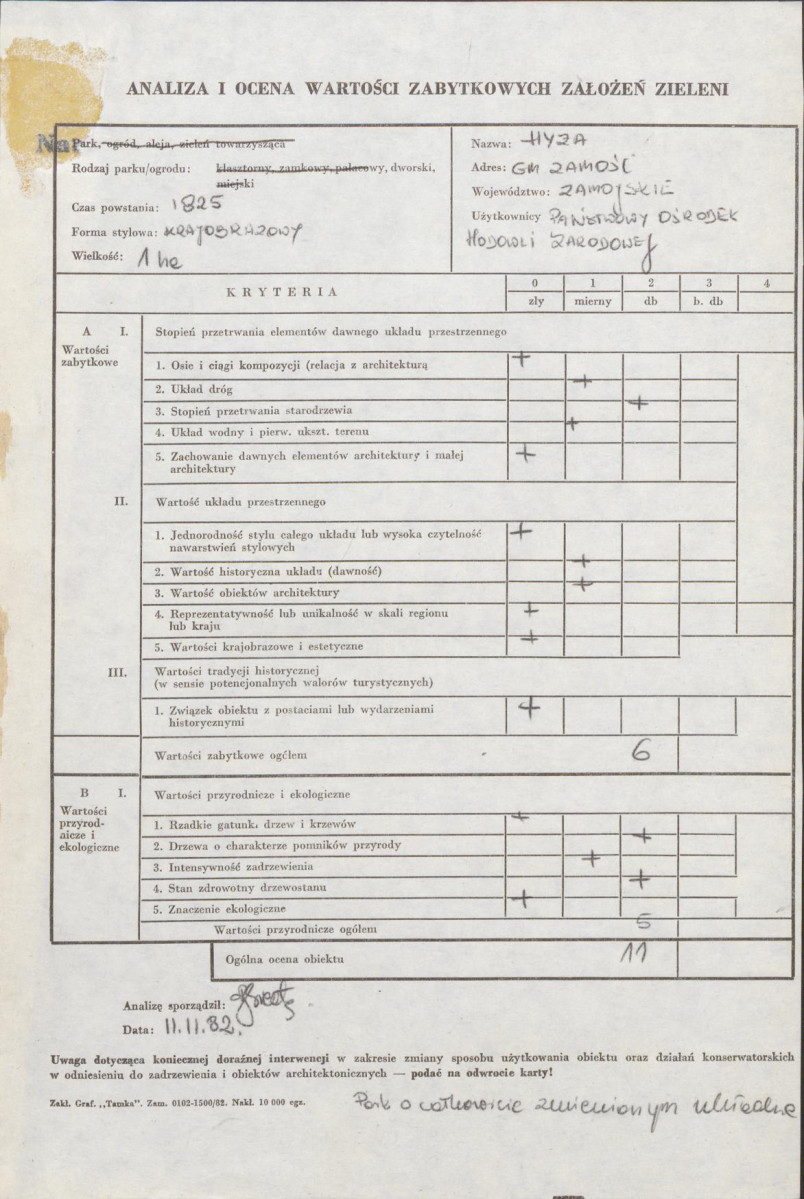 ANALIZA I OCENA WARTOŚCI ZABYTKOWYCH ZAŁOŻEŃ ZIELENI
Park, ogród, aleja, zieleń towarzysząca
Rodzaj parku/ogrodu: klasztorny, zamkowy, pałacowy, dworski,
miejski
Czas powstania: 1825
Forma stylowa: KRAJOBRAZOWY
Wielkość: 1 ha
Nazwa: HYŻA
Adres: GM ZAMOŚĆ
Województwo: ZAMOJSKIE
Użytkownicy PAŃSTWOWY OŚRODEK
HODOWLI ZARODOWEJ
KRYTERIA
0 1 2 3 4
zły mierny db b. db
A I. Stopień przetrwania elementów dawnego układu przestrzennego
Wartości
zabytkowe
1. Osie i ciągi kompozycji (relacja z architekturą +
2. Układ dróg +
3. Stopień przetrwania starodrzewia +
4. Układ wodny i pierw. ukszt. terenu +
5. Zachowanie dawnych elementów architektury i małej +
architektury
II. Wartość układu przestrzennego
1. Jednorodność stylu całego układu lub wysoka czytelność +
nawarstwień stylowych
2. Wartość historyczna układu (dawność) +
3. Wartość obiektów architektury +
4. Reprezentatywność lub unikalność w skali regionu +
lub kraju
5. Wartości krajobrazowe i estetyczne +
III. Wartości tradycji historycznej
(w sensie potencjonalnych walorów turystycznych)
1. Związek obiektu z postaciami lub wydarzeniami +
historycznymi
Wartości zabytkowe ogółem 6
B I. Wartości przyrodnicze i ekologiczne
Wartości
przyrod-
nicze i
ekologiczne
1. Rzadkie gatunki drzew i krzewów +
2. Drzewa o charakterze pomników przyrody +
3. Intensywność zadrzewienia +
4. Stan zdrowotny drzewostanu +
5. Znaczenie ekologiczne +
Wartości przyrodnicze ogółem 5
Ogólna ocena obiektu 11
Analizę sporządził:
Data: 11.11.82.
Uwaga dotycząca koniecznej doraźnej interwencji w zakresie zmiany sposobu użytkowania obiektu oraz działań konserwatorskich
w odniesieniu do zadrzewienia i obiektów architektonicznych — podać na odwrocie karty!
Zakł. Graf. „Tamka". Zam. 0102-1500/82. Nakł. 10 000 egz.
Park o całkowicie zmienionym układzie